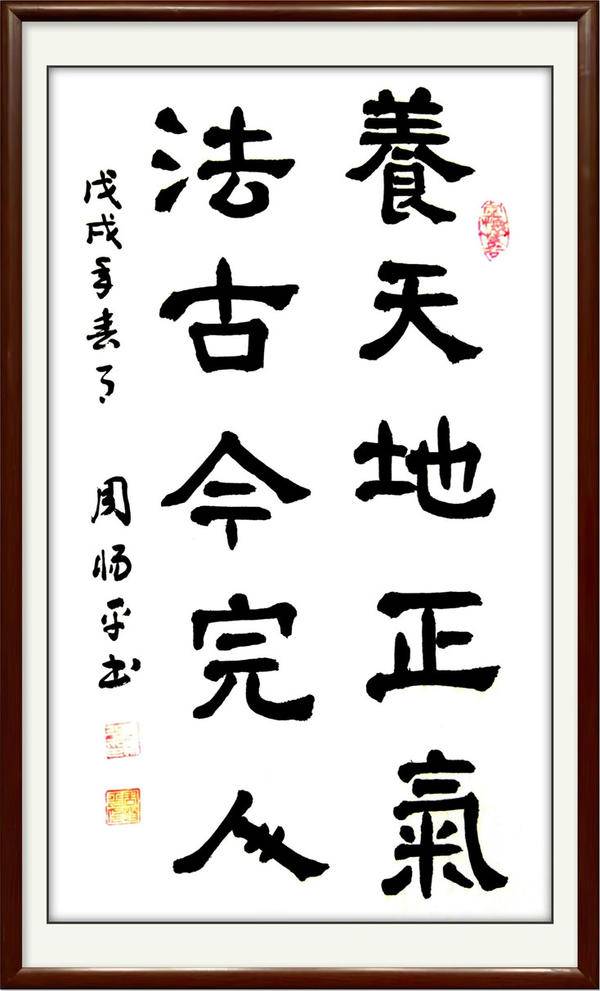 養天地正氣
法古今完人
戊戌年春月
周
平书